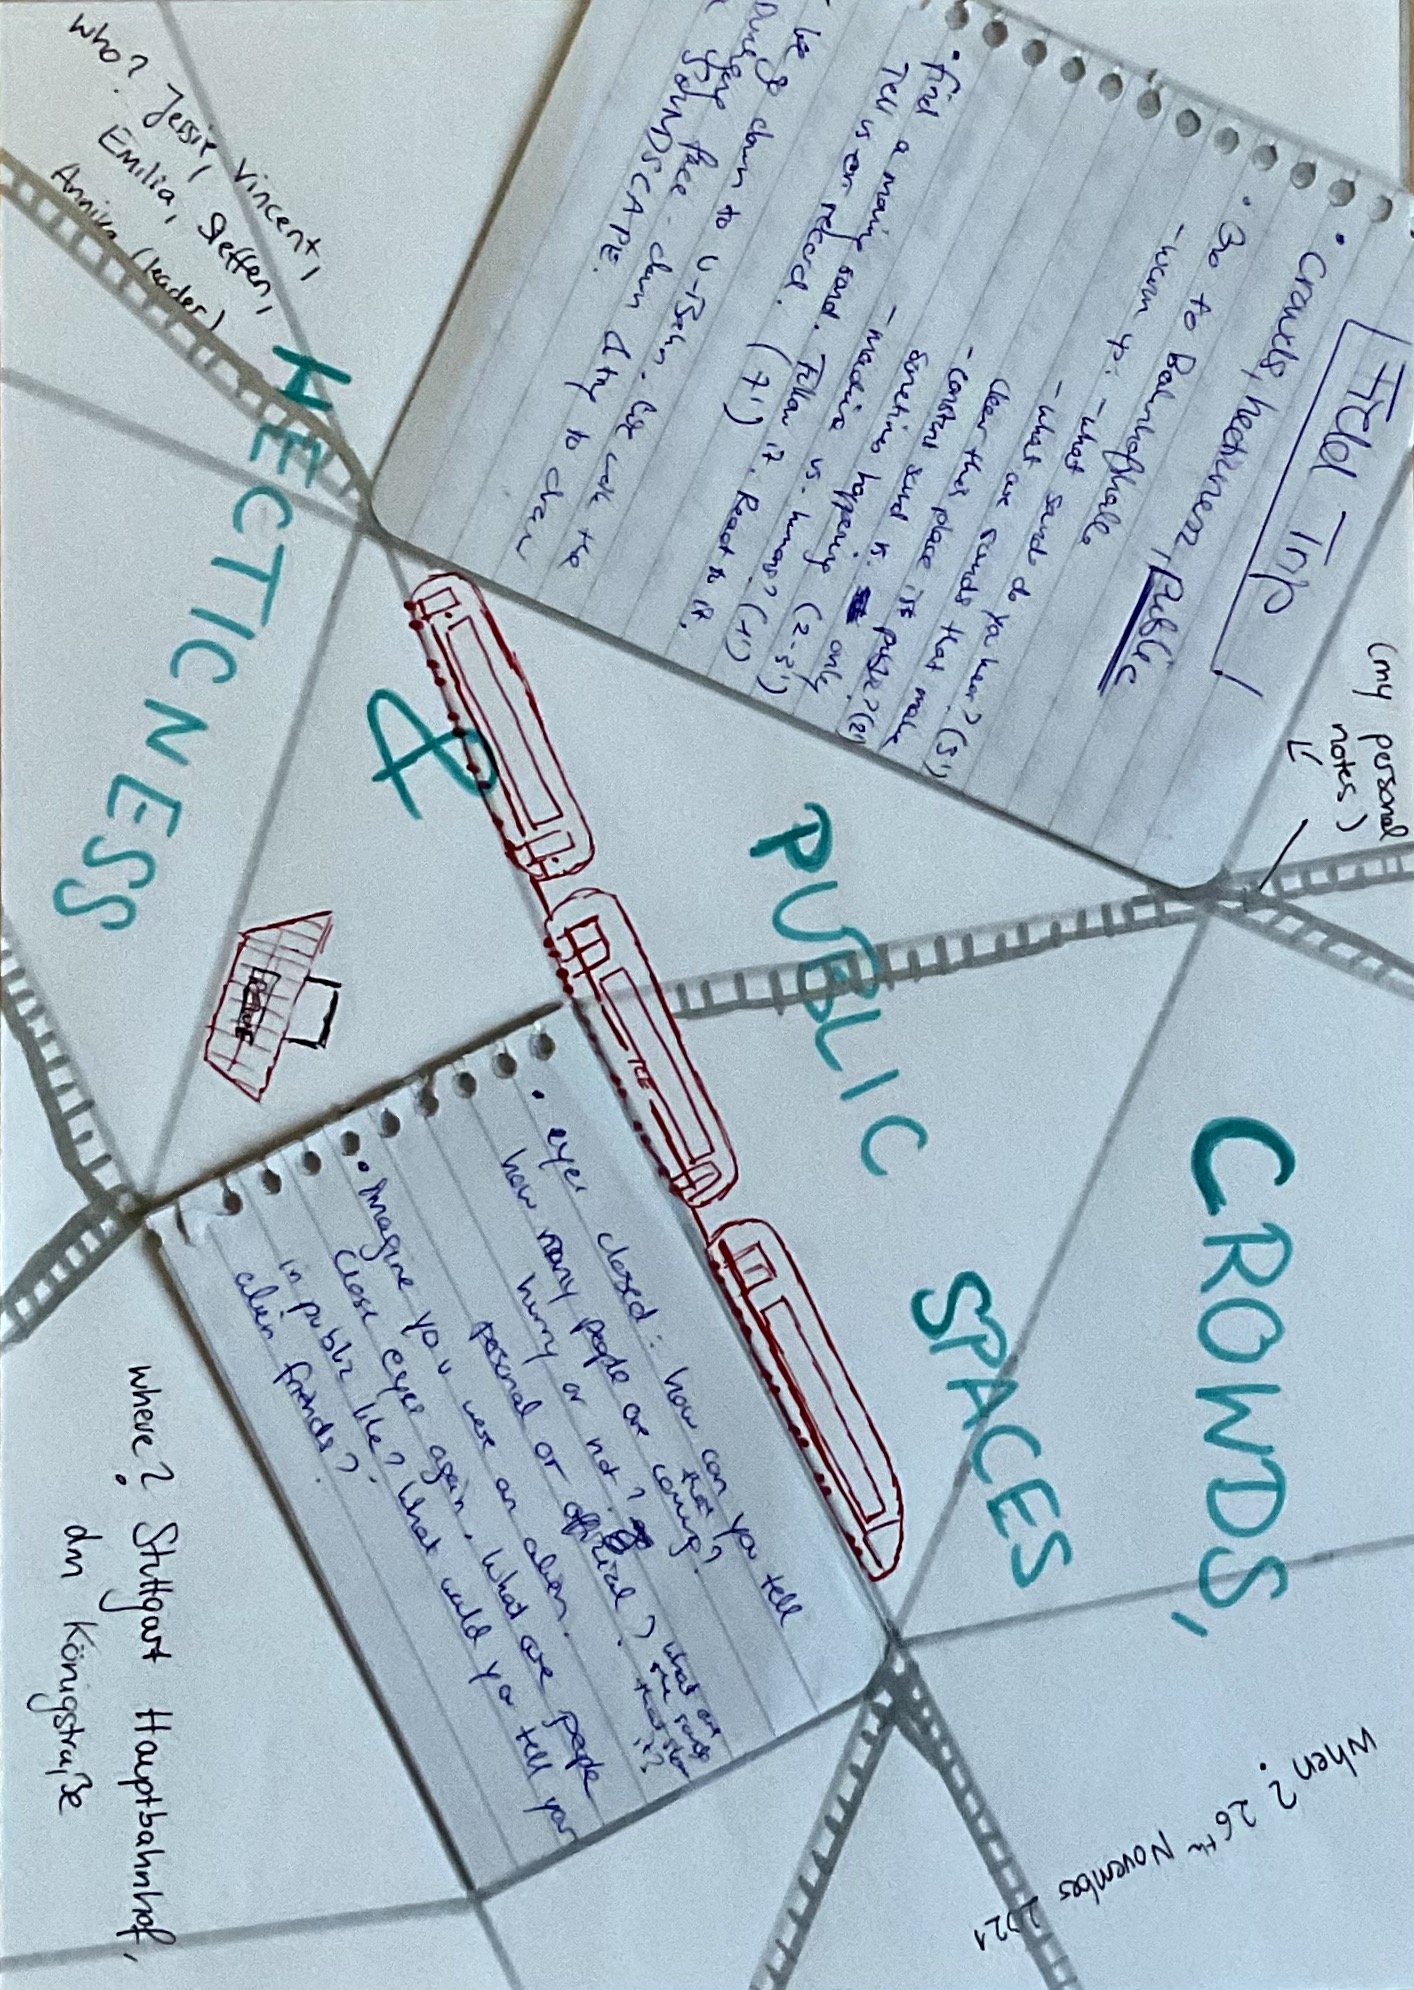 CROWDS,
PUBLIC SPACES
&
HECTICNESS
who? Jessie, Vincent,
Emilia, Steffen,
Annika (leader)
(my personal
notes)
Field Trip
• crowds, hecticness, public
• Go to Bahnhofhalle
- warm up: - what sounds do you hear? (3')
- what are sounds that make
clear this place is public? (2')
- constant sound vs. only
sometimes happening (2-3')
- machine vs. human? (1')
• find a moving sound. Follow it. React to it.
Tell us or record. (7')
go down to U-Bahn. Lie with the
face down
SOUNDSCAPE.
• eyes closed: how can you tell
how many people are coming?
that
hurry or not?
personal or official?
what are
the sounds
that show
it?
• Imagine you were an alien.
Close eyes again. What are people
in public like? What would you tell your
alien friends?
ICE
where? Stuttgart Hauptbahnhof,
dm Königstraße
when? 26th November 2021